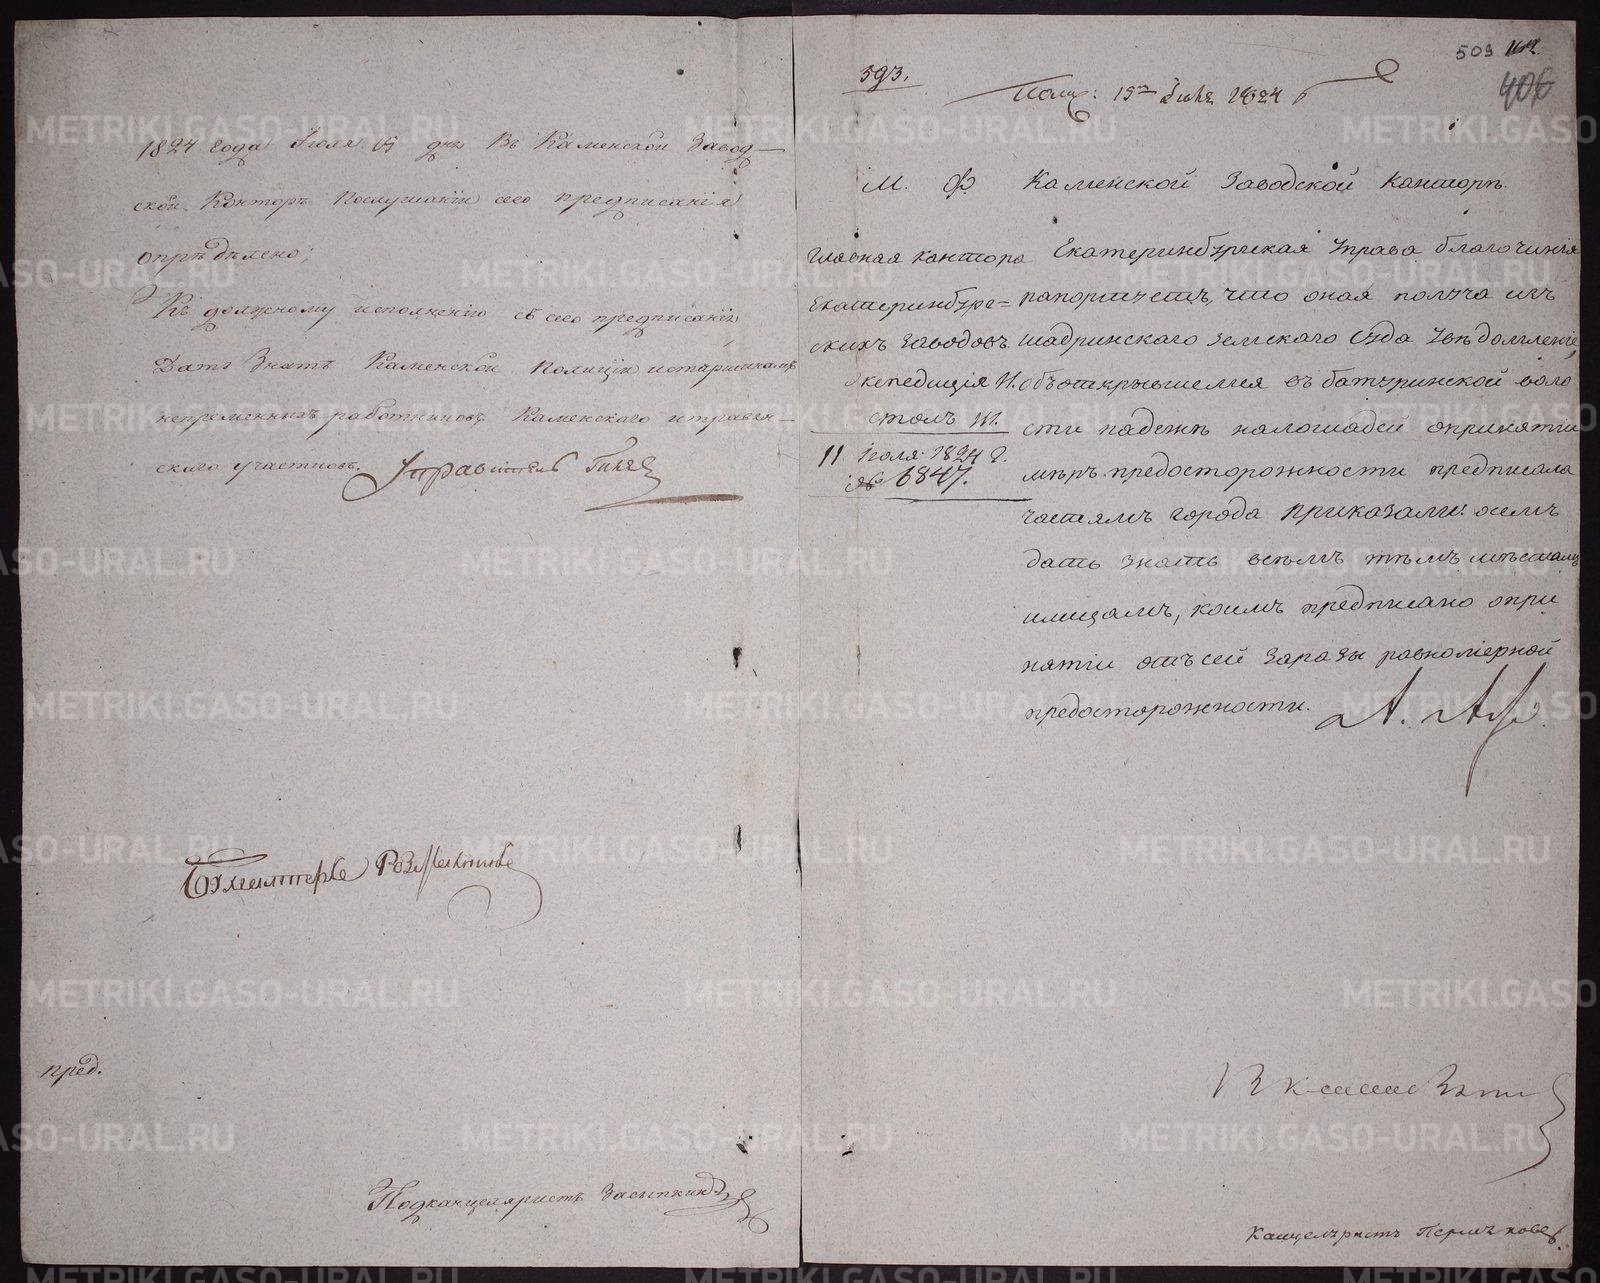 1824 года Июля 15 дня Въ Каменской Завод-
ской Конторѣ Послушанiи сего предписанiя
опредѣлено;
Къ должному исполненiю сего предписанiя
Дать Знать Каменской Полицiи и старшинамъ
непременныхъ работниковъ Каменскаго и травян-
скаго участковъ. Управитель
Бухгалтеръ
пред.
Подканцеляристъ Засыпкинъ
509
406
393.
Получ: 15го Июля 1824
М. Ф. Каменской Заводской канторѣ.
Главная кантора
Екатеринбург-
скихъ Заводовъ
Экспедицiя II.
столъ III.
11 Июля 1824 г.
№ 6847.
Екатеринбургская Управа благочинiя
рапортуетъ, что оная получа изъ
шадринскаго земскаго Суда Увѣдомленiе,
объоткрывшемся въ батуринской воло
сти падежѣ налошадей опринятiи
мѣръ предосторожности предписала
частямъ города приказали: осемъ
дать знать всѣмъ тѣмъ мѣстамъ
илицамъ, коимъ предписано опри
нятiи отъ сей Заразы равномерной
предосторожности.
Канцеляристъ
METRIKI.GASO-URAL.RU